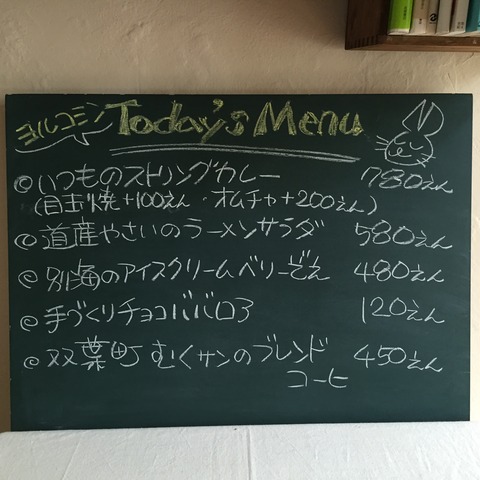 ヨルコミン Today's Menu
◎いつものストリングカレー 780えん
(目玉焼+100えん・オムチャ+200えん)
◎道産やさいのラーメンサラダ 580えん
◎別海のアイスクリームベリーぞえ 480えん
◎手づくりチョコババロア 120えん
◎双葉町むくサンのブレンド 450えん
コーヒ